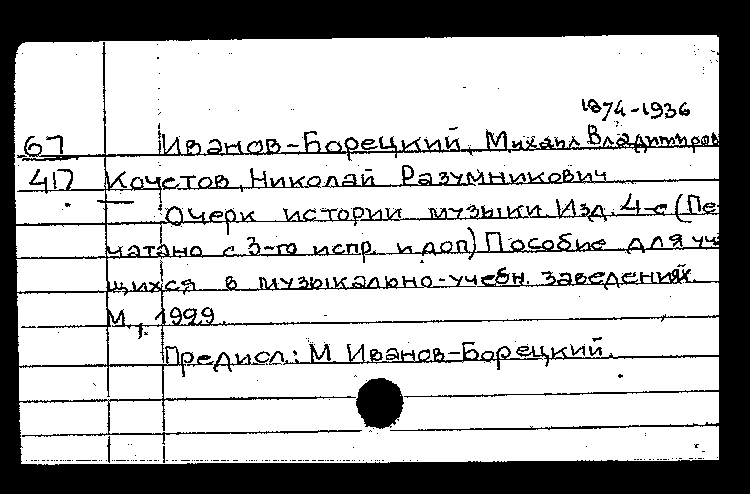 1874-1936
67 Иванов-Борецкий, Михаил Владимиров
417 Кочетов, Николай Разумникович
Очерк истории музыки. Изд. 4-е (Пе-
чатано с 3-го испр. и доп) Пособие для уча
щихся в музыкально-учебн. заведениях.
М., 1929.
Предисл.: М. Иванов-Борецкий.